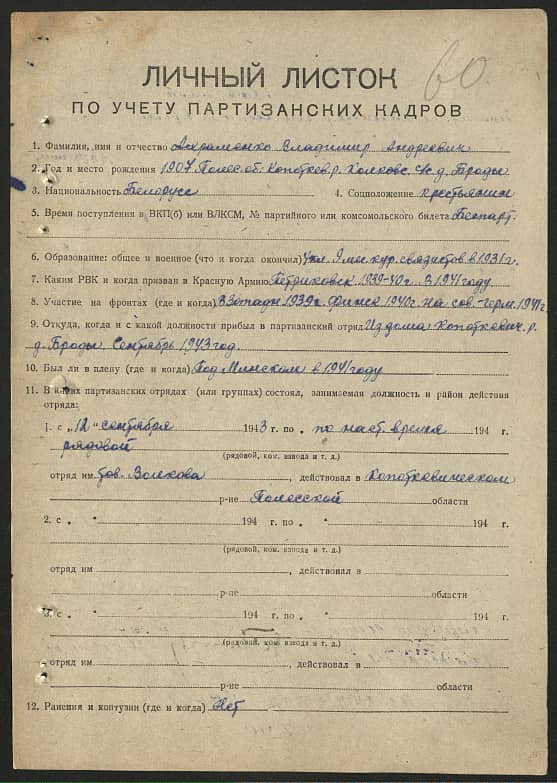 60.
ЛИЧНЫЙ ЛИСТОК
ПО УЧЕТУ ПАРТИЗАНСКИХ КАДРОВ
1. Фамилия, имя и отчество Ахраменко Владимир Андреевич
2. Год и место рождения 1907 Полес. об. Копоткев. р. Колковс. с/с. д. Броды
3. Национальность Белорусс 4. Соцположение крестьянин
5. Время поступления в ВКП(б) или ВЛКСМ, № партийного или комсомольского билета Беспарт.
6. Образование: общее и военное (что и когда окончил) 4кл. 9 мес. кур. связистов в 1931 г.
7. Каким РВК и когда призван в Красную Армию Петриковск. 1939-40 г. В 1941 году
8. Участие на фронтах (где и когда) В Западн 1939 г. Финск 1940 г. На сов.-герм. 1941 г.
9. Откуда, когда и с какой должности прибыл в партизанский отряд Из дома Копоткевич. р.
д. Броды. Сентябрь 1943 год.
10. Был ли в плену (где и когда) Под Минском в 1941 году
11. В каких партизанских отрядах (или группах) состоял, занимаемая должность и район действия
отряда:
1. с „12" сентября 1943 г. по „ по наст. время 194 г.
рядовой
(рядовой, ком. взвода и т. д.)
отряд им тов. Волкова, действовал в Копоткевическом
р-не Полесской области
2. с „ " 194 г. по „ " 194 г.
(рядовой, ком. взвода и т. д.)
отряд им , действовал в
р-не области
3. с „ " 194 г. по „ " 194 г.
(рядовой, ком. взвода и т. д.)
отряд им , действовал в
р-не области
12. Ранения и контузии (где и когда) Нет